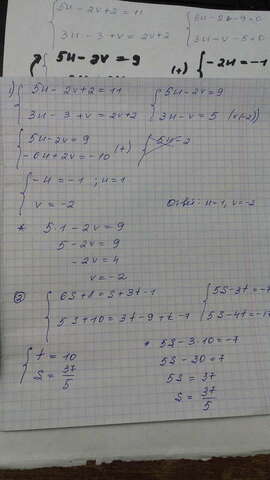 5u-2v+2=11
3u-3+v=2v+2
5u-2v-9=0
3u-v-5=0
5u-2v=9
(+)
-2u=-1
1) 5u-2v+2=11
3u-3+v=2v+2
5u-2v=9
3u-v=5 (x(-2))
5u-2v=9
-6u+2v=-10
(+)
5u-2
-u=-1; u=1
v=-2
Ответ: u=1, v=-2
* 5·1-2v=9
5-2v=9
-2v=4
v=-2
② 6s+t=s+3t-1
5s+10=3t-9+t-1
5s-3t=-7
t=10
s=37/5
* 5s-3·10=-7
5s-30=7
5s=37
s=37/5